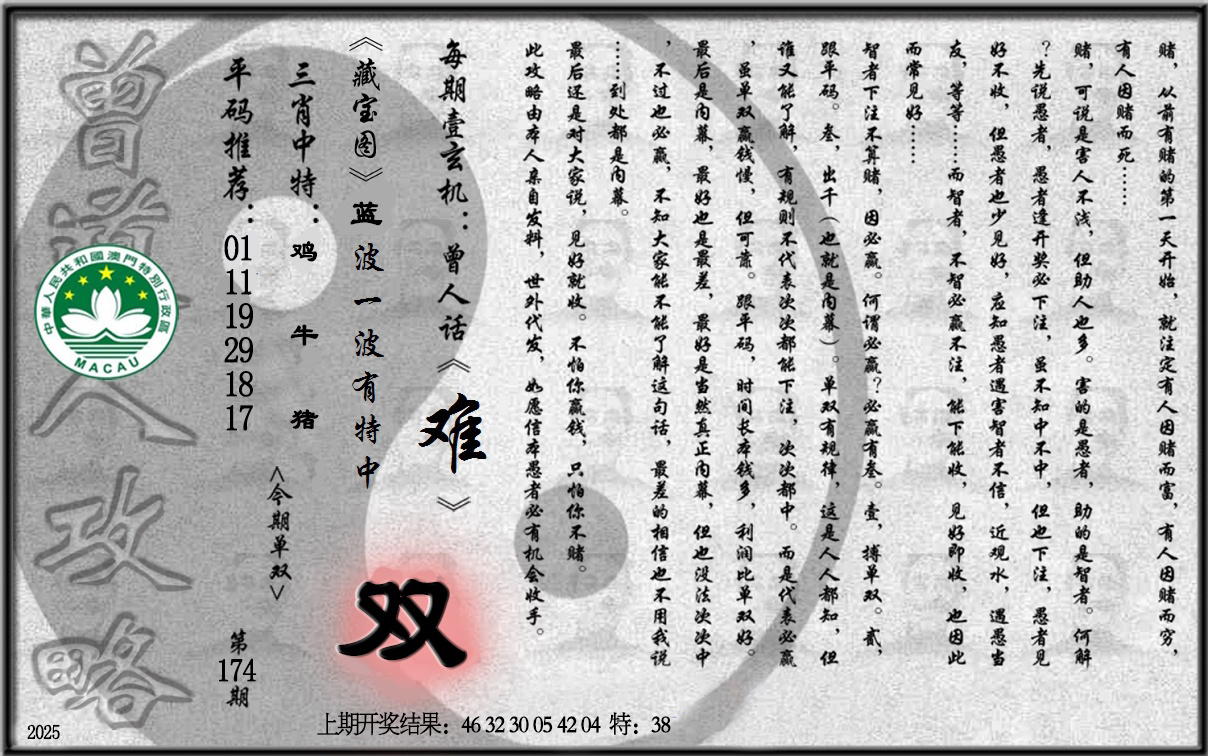 赌，从前有赌的第一天开始，就注定有人因赌而富，有人因赌而穷，
有人因赌而死……
赌，可说是害人不浅，但助人也多。害的是愚者，助的是智者。何解
？先说愚者，愚者逢开奖必下注，虽不知中不中，但也下注，愚者见
好不收，但愚者也少见好，应知愚者遇害智者不信，近观水，遇愚当
友，等等……而智者，不智必赢不注，能下能收，见好即收，也因此
而常见好……
智者下注不算赌，因必赢。何谓必赢？必赢有叁。壹，搏单双。贰，
跟平码。叁，出千（也就是内幕）。单双有规律，这是人人都知，但
谁又能了解，有规则不代表次次都能下注，次次都中。而是代表必赢
，虽单双赢钱慢，但可靠。跟平码，时间长本钱多，利润比单双好。
最后是内幕，最好也是最差，最好是当然真正内幕，但也没法次次中
，不过也必赢，不知大家能不能了解这句话，最差的相信也不用我说
……到处都是内幕。
最后还是对大家说，见好就收。不怕你赢钱，只怕你不赌。
此攻略由本人亲自发料，世外代发，如愿信本愚者必有机会收手。
每期壹玄机：曾人话《难》
《藏宝图》蓝波一波有特中
双
三肖中特：鸡 牛 猪
<今期单双>
平码推荐：01 11 19 29 18 17
第174期
曾道人攻略
中華人民共和國澳門特別行政區
MACAU
上期开奖结果：46 32 30 05 42 04 特：38
2025